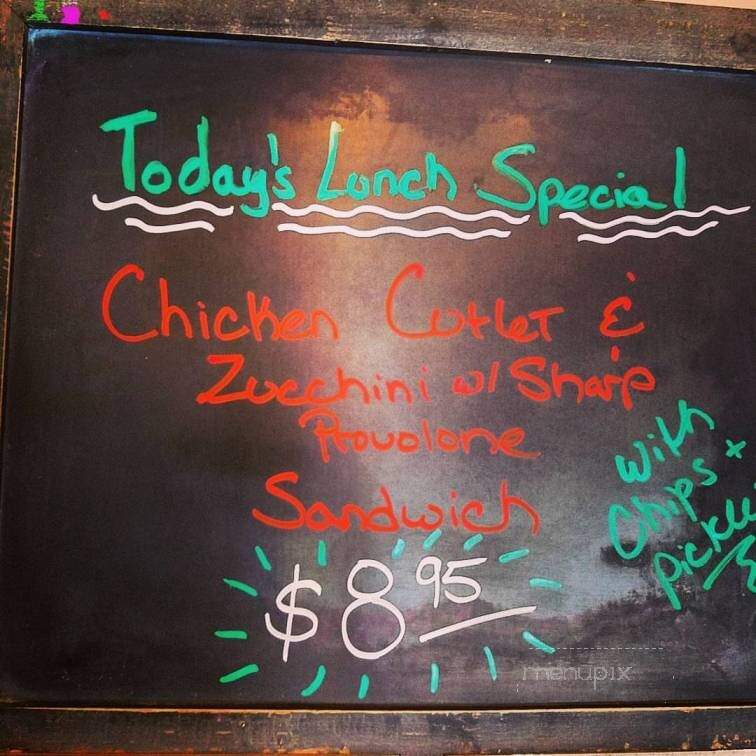 Today's Lunch Special
Chicken Cutlet &
Zucchini w/ Sharp
Provolone
Sandwich
$8.95
with
Chips +
pickle
menupix